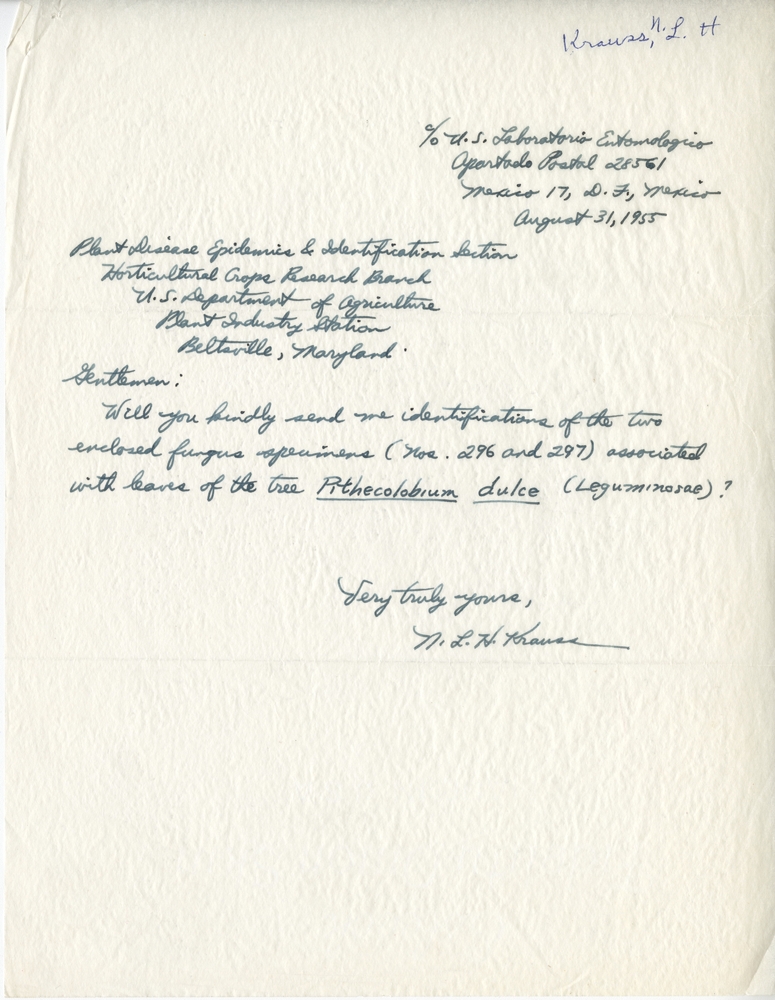 Krauss, N. L. H
c/o U.S. Laboratorio Entomologico
Apartado Postal 28561
Mexico 17, D. F., Mexico
August 31, 1955
Plant Disease Epidemics & Identification Section
Horticultural Crops Research Branch
U.S. Department of Agriculture
Plant Industry Station
Beltsville, Maryland.
Gentlemen:
Will you kindly send me identifications of the two
enclosed fungus specimens (Nos. 296 and 297) associated
with leaves of the tree Pithecolobium dulce (Leguminosae)?
Very truly yours,
N. L. H. Krauss